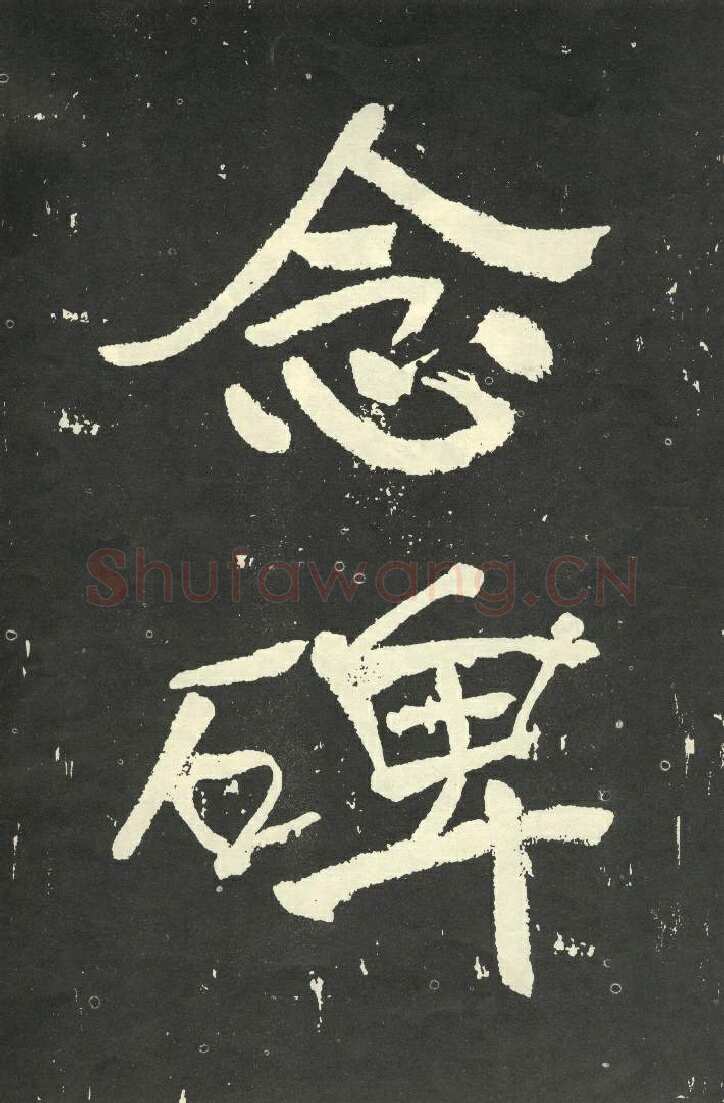 念
碑
Shufawang.CN